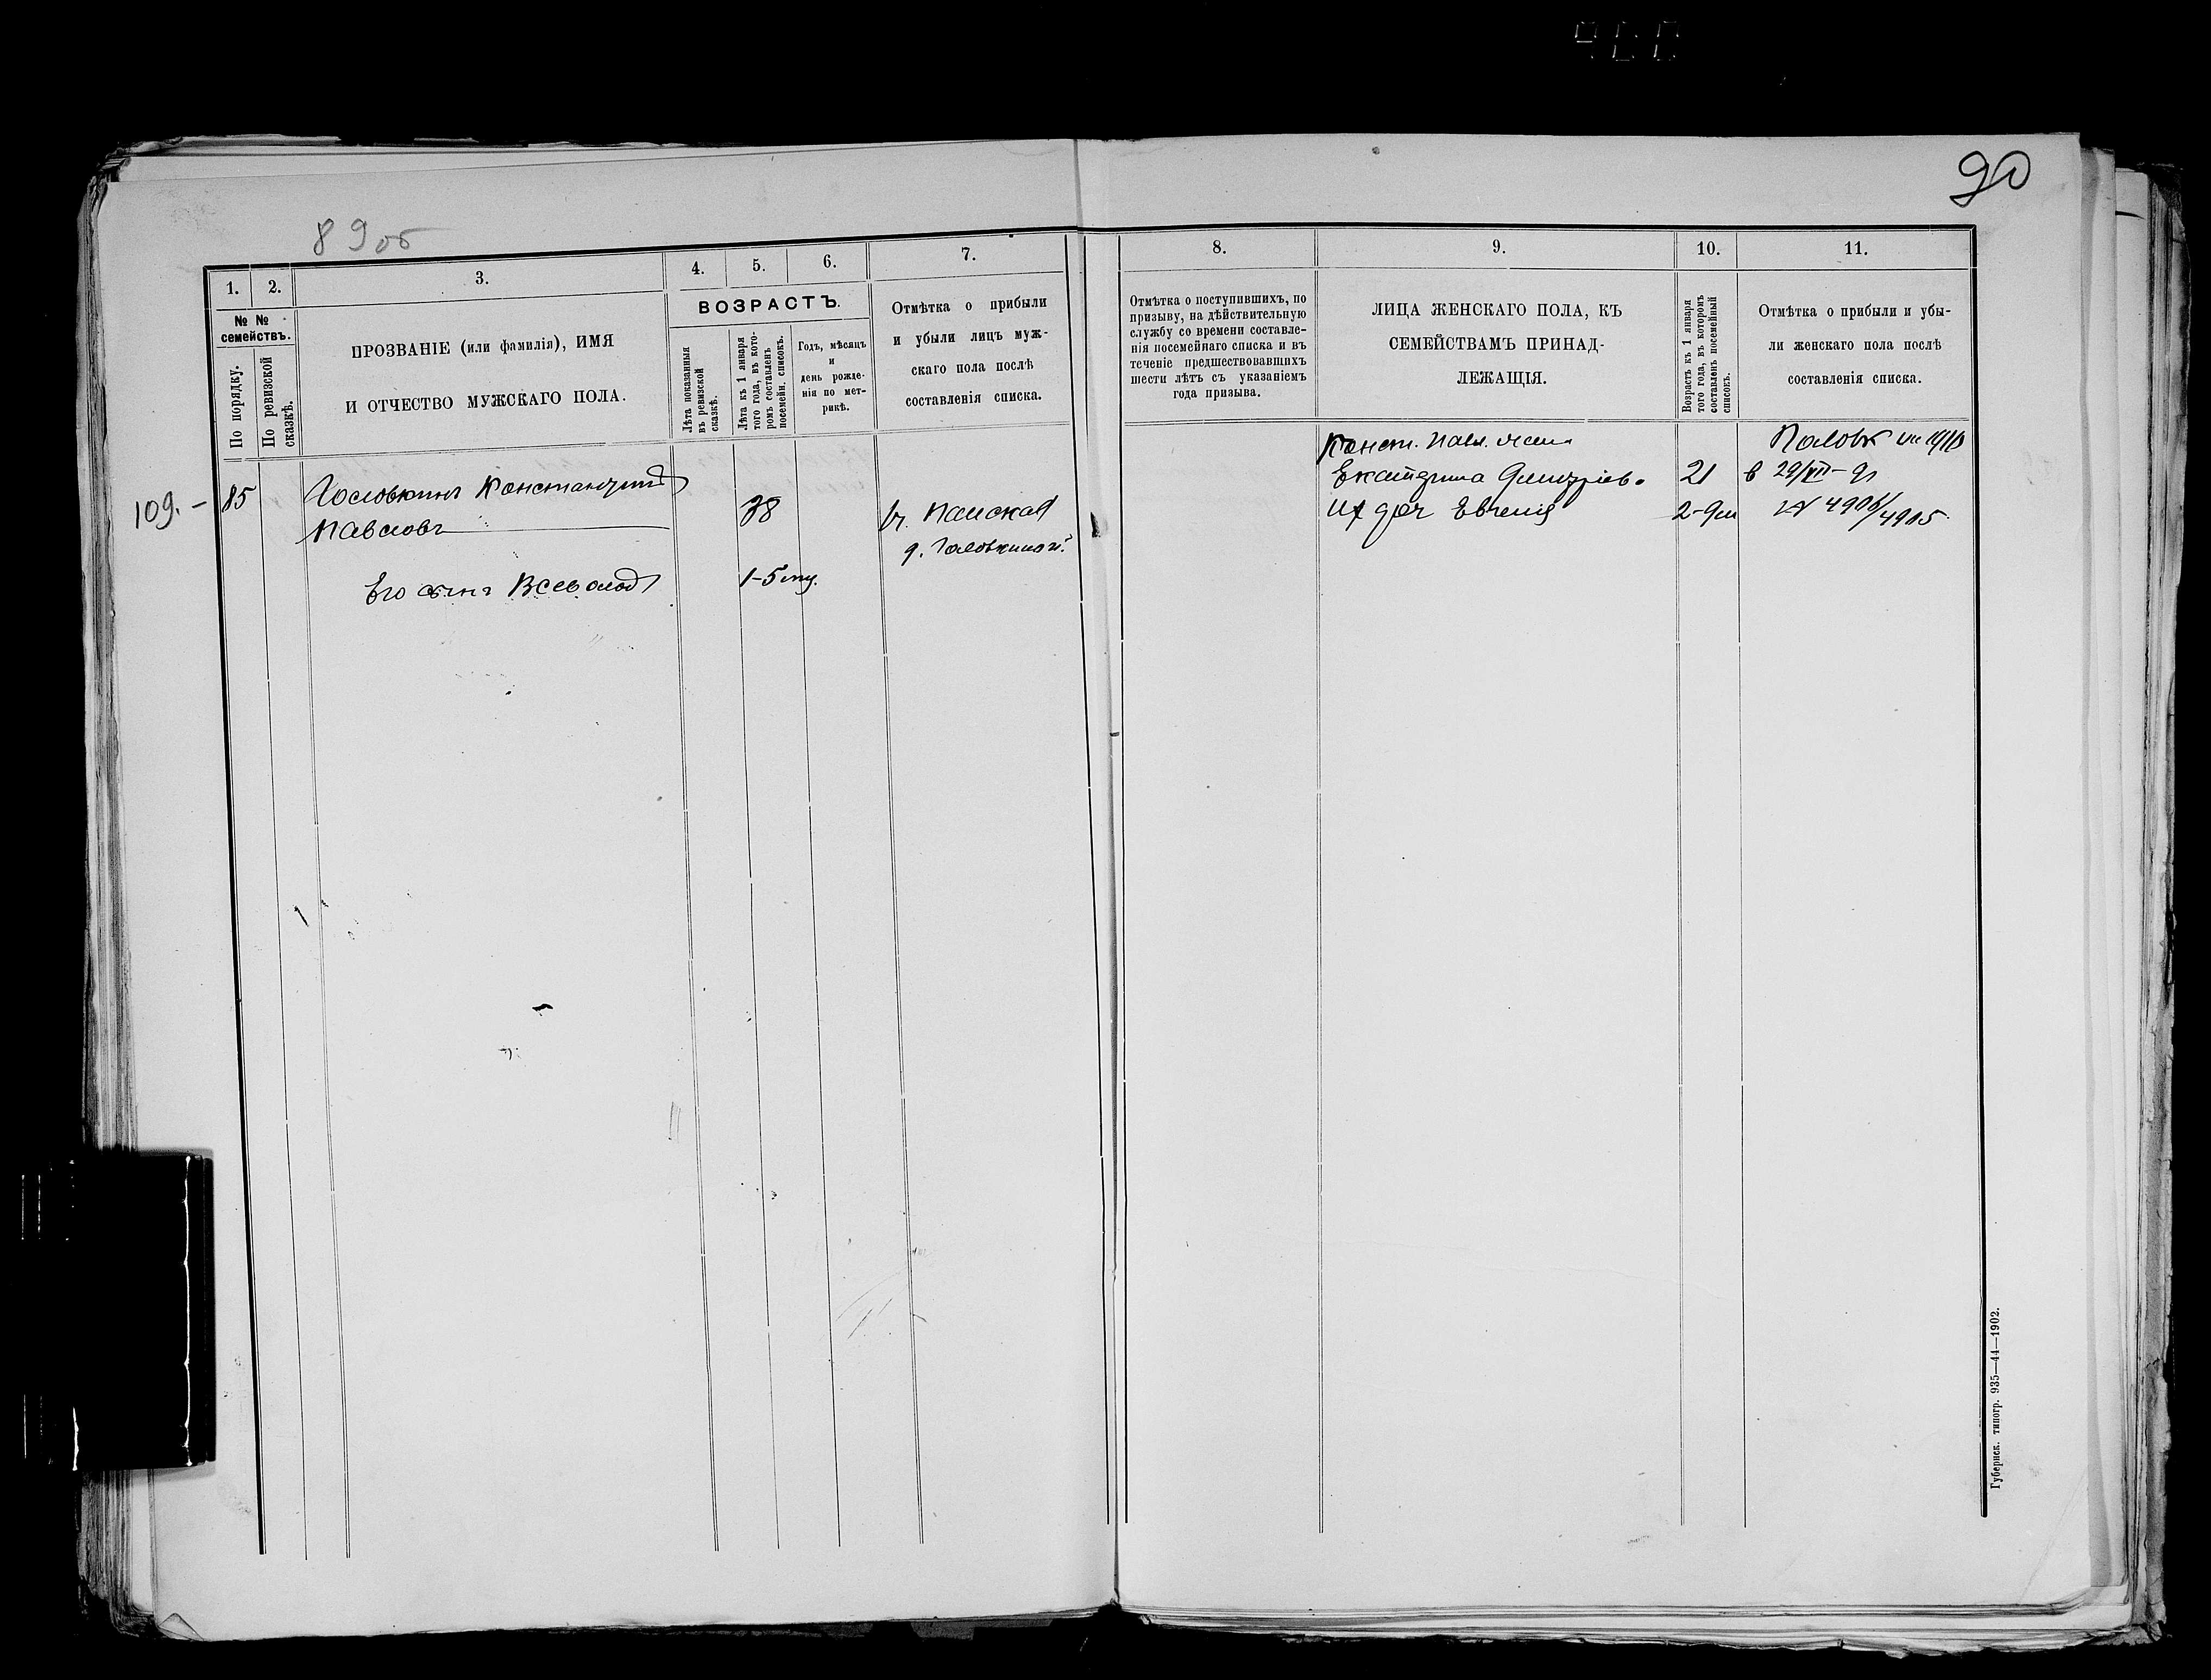 90
89об
1.
2.
3.
4.
5.
6.
7.
8.
9.
10.
11.
№ №
семействъ.
По порядку.
По ревизской
сказкѣ.
ПРОЗВАНІЕ (или фамилія), ИМЯ
И ОТЧЕСТВО МУЖСКАГО ПОЛА.
ВОЗРАСТЪ.
Лѣта показанныя
въ ревизской
сказкѣ.
Лѣта къ 1 января
того года, въ кото-
ромъ составленъ
посемейн. списокъ.
Годъ, мѣсяцъ
и
день рожде-
нія по мет-
рикѣ.
Отмѣтка о прибыли
и убыли лицъ муж-
скаго пола послѣ
составленія списка.
Отмѣтка о поступившихъ, по
призыву, на дѣйствительную
службу со времени составле-
нія посемейнаго списка и въ
теченіе предшествовавшихъ
шести лѣтъ съ указаніемъ
года призыва.
ЛИЦА ЖЕНСКАГО ПОЛА, КЪ
СЕМЕЙСТВАМЪ ПРИНАД-
ЛЕЖАЩІЯ.
Возрастъ къ 1 января
того года, въ которомъ
составленъ посемейный
списокъ.
Отмѣтка о прибыли и убы-
ли женскаго пола послѣ
составленія списка.
109. – 85
Головкинъ Константинъ
Павловъ
38
д. Головкиной
Его сынъ Всеволодъ
1-5
Конст. Павл. жена
Екатерина Дмитріев.
21
в 29/VII
Их доч Евгенія
2-9м
4906/4905
Губернск. типогр. 935—44—1902.